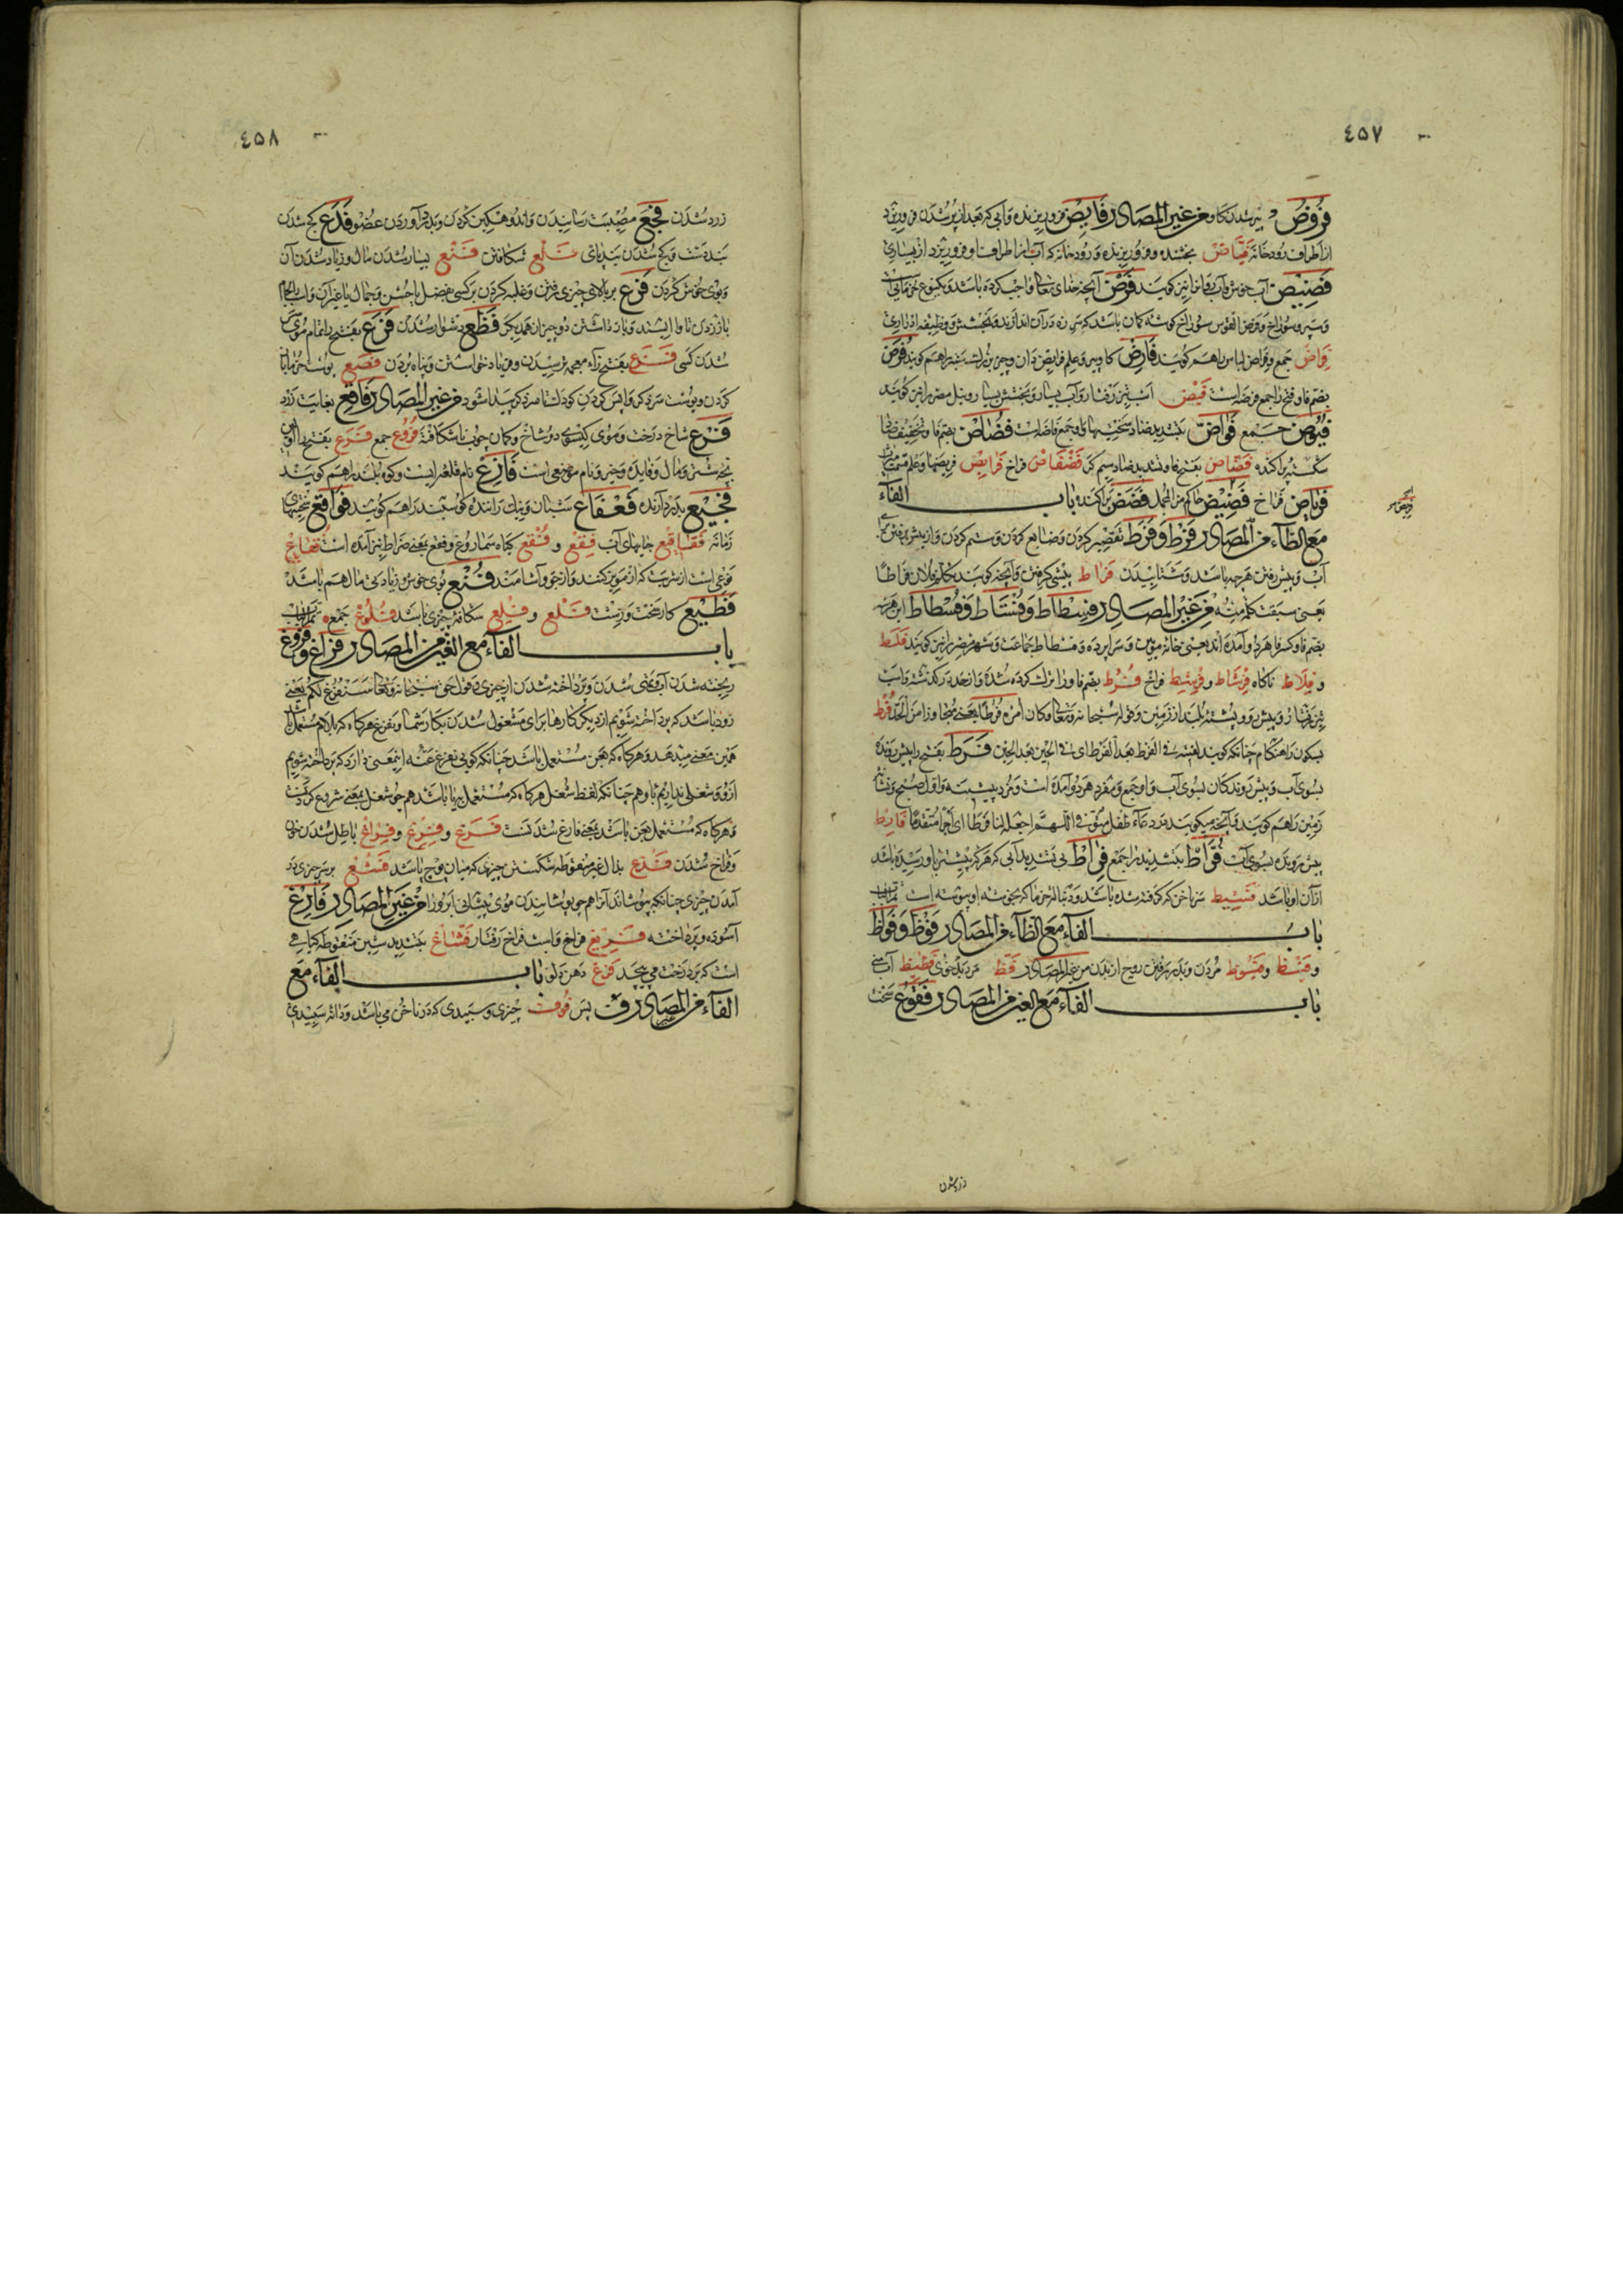 ٤٥٧
فروض پیر شدن کاو من غیر المصادر فایض فرو ریزنده و آبی که بعد از پر شدن فرو ریزد
از اطراف رودخانه فیاض بخشنده و فرو ریزنده و رودخانه که آب از اطراف او فرو ریزد از بسیاری
فضیض آب خوش و آب روان را نیز گویند فرض آنچه خدای تعالی واجب کرده باشد و یکنوع خرمائی است
و سپر و سوراخ و فرض القوس سوراخ گوشه کمان باشد که سر زه در آن اندازند و بخشش و وظیفه
فراض جمع و فراض لباس را هم گویند فارض کاو پیر و علم فرایض دان و چیز بزرگ ستبر را هم گویند فرض
بضم فا و فتح را جمع فرضه است فیض اسب تیز رفتار و آب بسیار و بخشش بسیار و نیل مصر را نیز گویند
فیوض جمع فواض بتشدید ضاد سختیها و او جمع فاضه است فضاض بضم فا و تخفیف ضاد
شکسته پراکنده فضاض بفتح فا و تشدید ضاد سیم گر فضفاض فراخ فرایض فریضها و علم قسمت
فریاض فراخ فضیض من المجمل فضض پراکنده باب الفاء
مع الطاء من المصادر فرط و فرط تقصیر کردن و ضایع کردن و ستم کردن و از پیش رفتن
آب و پیش رفتن هر چه باشد و شتابیدن فراط پیشی گرفتن و آنچه گویند تکلم فلان فراطا
یعنی سبقت کلمة منه من غیر المصادر فسطاط و فستاط و فسطاط این هر سه
بضم فا و کسر فا هر دو آمده اند یعنی خانه مویین و سراپرده و فسطاط جماعت و شهر مصر را نیز گویند فلط
و فلاط ناکاه فرشاط و فریسط فراخ فرط بضم فا و را ترک کرده شده و از حد در گذشته و اسب
تیز رفتار و پیش رو و پشته بلند از زمین و قوله سبحانه و تعالی و کان امره فرطا یعنی مجاوزا من الحد فرط
بسکون را هنگام چنانکه گویند لقیته فی الفرط بعد الفرط ای فی الحین بعد الحین فرط بفتح را پیش رونده
بسوی آب و پیش روندگان بسوی آب و او جمع و مفرد هر دو آمده است و مزد پیشینه و اول صبح و نشانه
زمین را هم گویند و آنچه میگویند در دعاء طفل میت اللهم اجعله لنا فرطا ای اجرا متقدما فارط
پیش رونده بسوی آب فراط بتشدید را جمع فراط بی تشدید آبی که هر که پیشتر باو رسیده باشد
از آن او باشد فسیط سر ناخن که گرفته شده باشد و دنباله خرما که بخوشه او پیوسته است تمام
باب الفاء مع الظاء من المصادر فوظ و فوظ
و فیظ و فیوظ مردن و بدر رفتن روح از بدن من غیر المصادر فظ مرد بدخوی فظیظ آب منی
باب الفاء مع العین من المصادر فقوع سخت
زرد شدن
٤٥٨
زرد شدن فجع مصیبت رسانیدن و اندوهگین کردن و بدرد آوردن عضو فدع کج شدن
بند دست و کج شدن بند پای فلع شکافتن فنع بسیار شدن مال و زیاد شدن آن
و بوی خوش کردن فرع بر بالای چیزی رفتن و غلبه کردن بر کسی بفضل یا حسن و جمال یا غیر آن
باز زدن تا وا ایستد و باز داشتن دو چیز از همدیگر فظع دشوار شدن فرع بفتح را تمام موی
شدن کسی فزع بفتح زاء معجمه ترسیدن و فریاد خواستن و پناه بردن فصع پوست خرما باز
کردن و پوست سر ذکر واپس کردن کودک تا سر ذکر پیدا شود من غیر المصادر فاقع بغایت زرد
فرع شاخ درخت و موی گیسوی دو شاخ و کمان چوب ناشکافته فروع جمع فرع بفتح را اول
بچه شتر و مال و فایده و چیز و نام موضعی است فارع نام قلعه ایست و کوه بلند را هم گویند
فجیع بدرد آرنده فعفاع شبان و نیک راننده گوسفند را هم گویند فواقع سختیهای
زمانه فقاقیع حبابهای آب فقع و فقع گیاه سماروغ و فقع یعنی ضراط نیز آمده است فقاع
نوعی است از شربت که از مویز کنند و از جو و آشامند فنع بوی خوش و زیادتی مال هم باشد
فظیع کار سخت و زشت فلع و فلع شکاف چیزی باشد فلوع جمع
باب الفاء مع الغین من المصادر فراغ و فروغ
ریخته شدن آب و غنی شدن و پرداخته شدن از چیزی و قول حق سبحانه و تعالی سنفرغ لکم یعنی
زود باشد که پرداخته شویم از دیگر کارها برای مشغول شدن بکار شما و نفرغ هر کاه که بلام مستعمل باشد
همین معنی میدهد و هر کاه که بعن مستعمل باشد چنانکه گویی نفرغ عنه اینمعنی دارد که پرداخته شویم
ازو و شغلی نداریم باو هم چنانکه لفظ شغل هر کاه که مستعمل ببا باشد هم چو شغل بمعنی شروع کردنست
و هر کاه که مستعمل بعن باشد بمعنی فارغ شدنست فرغ و فرغ و فراغ باطل شدن خون
و فراخ شدن فدغ بدال غیر منقوطه شکستن چیزی که میان پوچ باشد فشغ بر سر چیزی در
آمدن چیزی چنانکه بپوشاند آنرا هم چو پوشانیدن موی پیشانی ابرو را من غیر المصادر فارغ
آسوده و پرداخته فریغ فراخ و اسب فراخ رفتار فشاغ بتشدید شین منقوطه گیاهی
است که بر درخت می پیچد فرغ دهن دلو باب الفاء مع
الفاء من المصادر ف پس فوف چیزی و سپیدی که در ناخن می باشد و دانه سپیدی